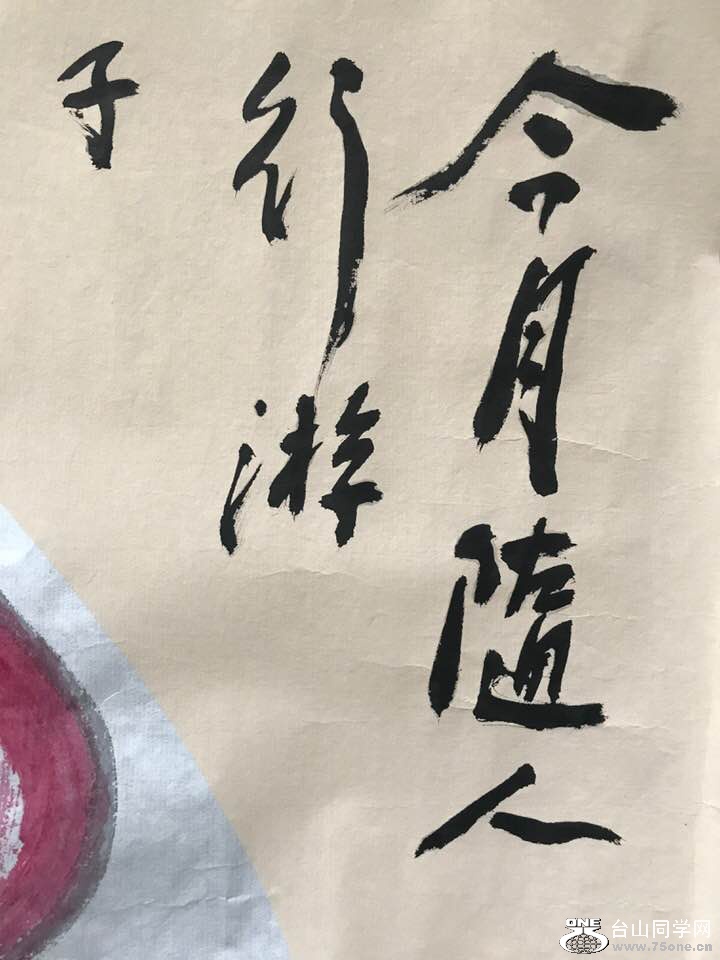 今月隨人
行游
子
ONE
台山同学网
www.75one.cn